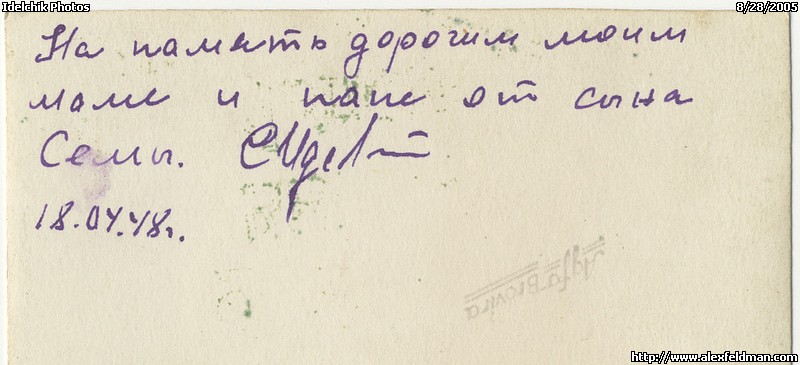 Idelchik Photos 8/28/2005
На память дорогим моим
маме и папе от сына
Семы.
18.04.48г.
http://www.alexfeldman.com